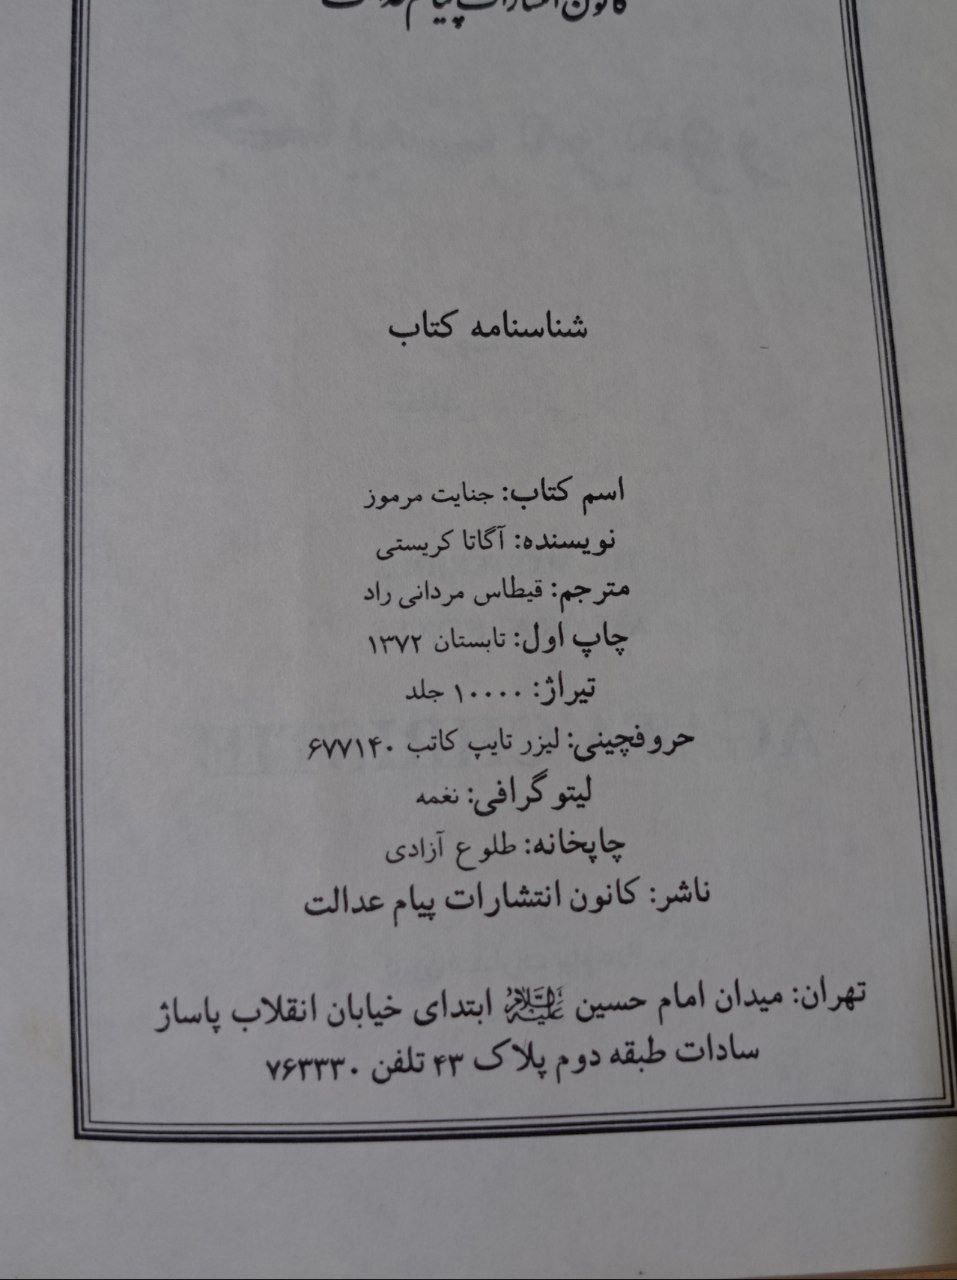 کانون انتشارات پیام عدالت
شناسنامه کتاب
اسم کتاب: جنایت مرموز
نویسنده: آگاتا کریستی
مترجم: قیطاس مردانی راد
چاپ اول: تابستان ۱۳۷۲
تیراژ: ۱۰۰۰۰ جلد
حروفچینی: لیزر تایپ کاتب ۶۷۷۱۴۰
لیتوگرافی: نغمه
چاپخانه: طلوع آزادی
ناشر: کانون انتشارات پیام عدالت
تهران: میدان امام حسین علیه‌السلام ابتدای خیابان انقلاب پاساژ
سادات طبقه دوم پلاک ۴۳ تلفن ۷۶۳۳۳۰